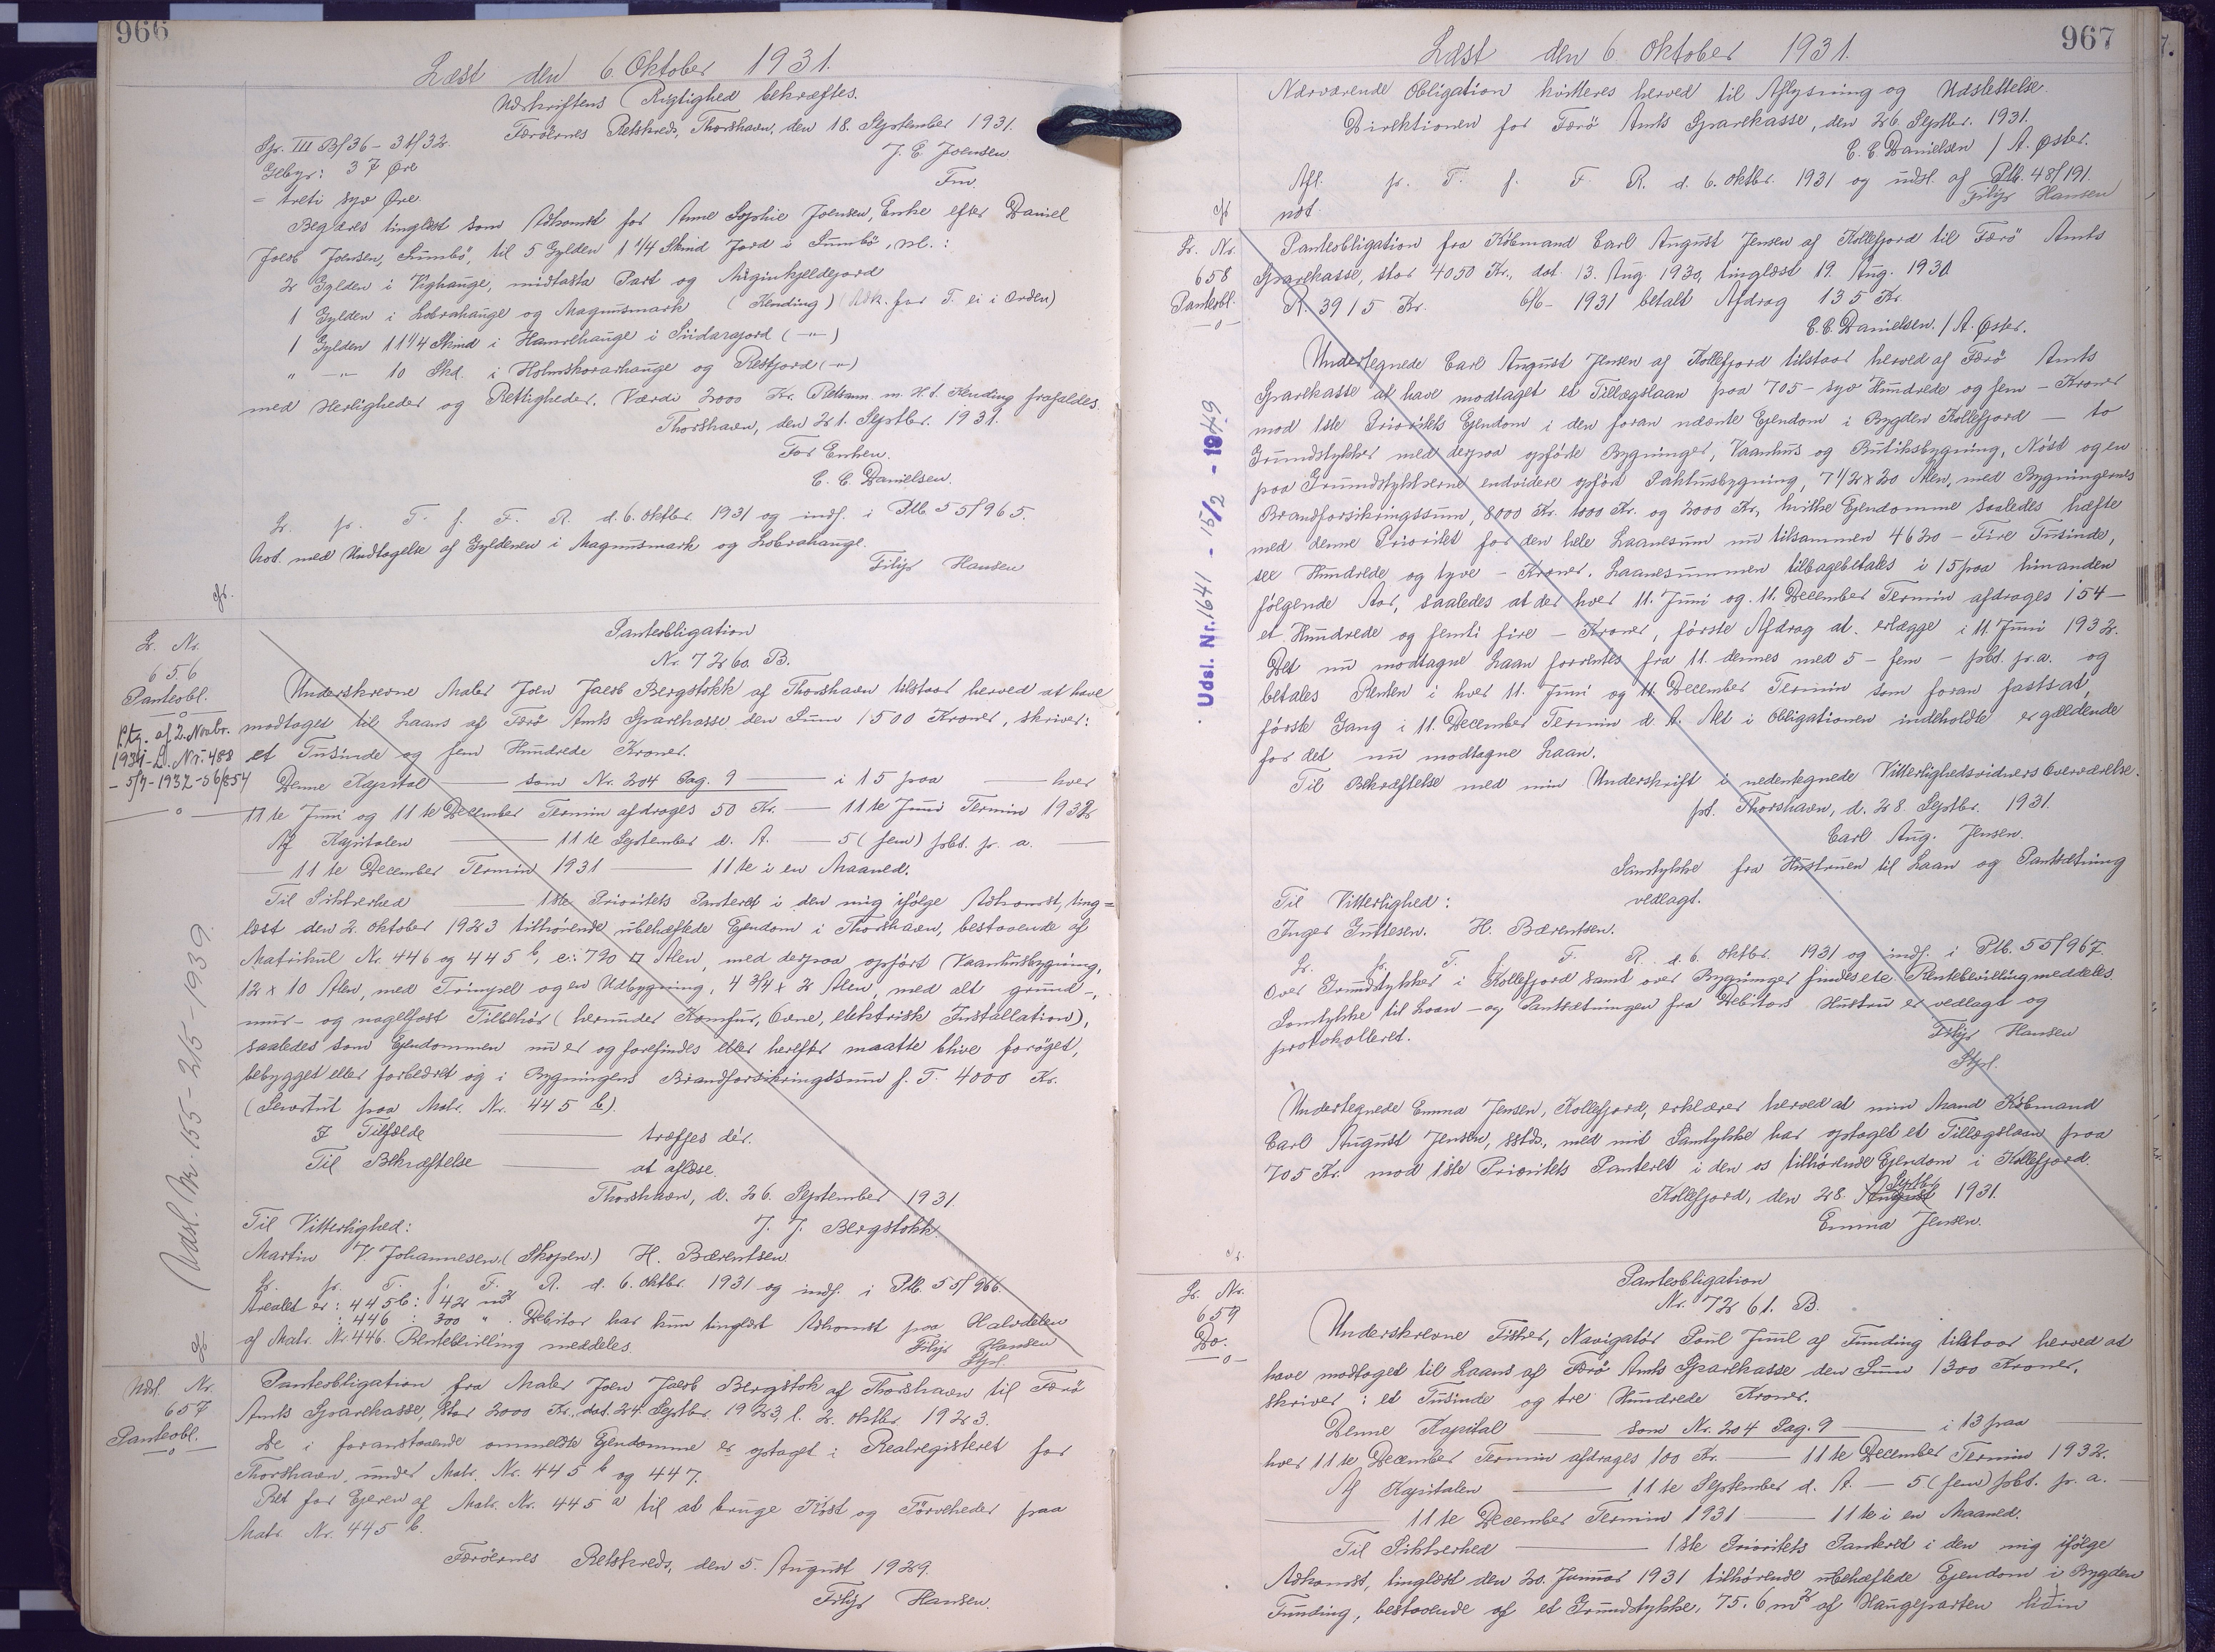 966
Læst den 6. Oktober 1931.
Udskriftens Rigtighed bekræftes.
Færøernes Retskreds, Thorshavn, den 18. September 1931.
Gr. III B/36 - 3 t/32.
J. E. Joensen
Gebyr: 37 Øre
Fm.
= treti syv Øre.
Begæres tinglæst som Adkomst for Anne Sophie Joensen, Enke efter Daniel
Jacob Joensen, Sumbö, til 5 Gylden 1 1/4 Skind Jord i Sumbö, nl.:
2 Gylden i Vighauge, midtasta Part og
1 Gylden i Lobrahauge og Magnusmark (Kending) (Adk. for T. ei i Orden)
1 Gylden 11 1/4 Skind i Hamrehauge i Sudaragord (-"-)
" -"- 10 Skd. i Holmskorarhauge og Restjord (-"-)
med Herligheder og Rettigheder. Værdi 2000 Kr. Retsanm. m. H. t. Kending frafaldes.
Thorshavn, den 21. Septbr. 1931.
For Enken.
C. C. Danielsen.
L. pr. T. f. F. R. d. 6. Oktbr. 1931 og indf. i Ptb. 55/965.
Not. med Undtagelse af Gyldenen i Magnusmark og Lobrahauge.
Filip Hansen
Panteobligation
L. Nr.
Nr. 7260. B.
656
Panteobl.
Underskrevne Maler Joen Jacob Bergstokk af Thorshavn tilstaar herved at have
modtaget til Laans af Færö Amts Sparekasse den Sum 1500 Kroner, skriver:
Ptg. af 2. Novbr.
1934 - L. Nr. 488
et Tusinde og fem Hundrede Kroner.
- 5/7 - 1937 - 56/854
Denne Kapital — som Nr. 204 Pag. 9 — i 15 paa — hver
11te Juni og 11te December Termin afdrages 50 Kr. — 11te Juni Termin 1932
Af Kapitalen — 11te September d. A. — 5 (fem) pCt. p. a. —
— 11te December Termin 1931 — 11te i en Maaned.
Til Sikkerhed — 1ste Prioritets Panteret i den mig ifølge Adkomst, ting=
læst den 2. Oktober 1923 tilhørende ubehæftede Ejendom i Thorshavn, bestaaende af
Matrikul Nr. 446 og 445 b, c: 790 □ Alen, med derpaa opført Vaanhusbygning,
12 x 10 Alen, med Trimpel og en Udbygning, 4 3/4 x 2 Alen, med alt grund-,
mur- og nagelfast Tilbehör (herunder Komfur, Ovne, elektrisk Installation),
saaledes som Ejendommen nu er og forefindes eller herefter maatte blive forøget,
bebygget eller forbedret og i Bygningens Brandforsikringssum f. T. 4000 Kr.
(Servitut paa Matr. Nr. 445 b).
I Tilfælde — træffes dér.
Til Bekræftelse — at aflæse.
Thorshavn, d. 26. September 1931.
Til Vitterlighed:
J. J. Bergstokk.
Martin V Johannesen (Skopen.) H. Bærentsen.
L. pr. T. f. F. R. d. 6. Oktbr. 1931 og indf. i Ptb. 55/966.
Arealet er: 445b: 42 m2
: 446 : 300 ". Debitor har kun tinglæst Adkomst paa Halvdelen
af Matr. Nr. 446. Rentebevilling meddeles.
Filip Hansen
Stpl.
Udsl. Nr. 155 - 2/5 - 1939.
Udsl. Nr.
657
Panteobl.
Panteobligation fra Maler Joen Jacob Bergstok af Thorshavn til Færö
Amts Sparekasse, stor 2000 Kr., dat. 24. Septbr. 1923, l. 2. Oktbr. 1923.
De i foranstaaende ommeldte Ejendomme er optaget i Realregisteret for
Thorshavn, under Matr. Nr. 445 b og 447.
Ret for Ejeren af Matr. Nr. 445 a til at bruge Köst og Törveheder paa
Matr. Nr. 445 b.
Færøernes Retskreds, den 5. August 1929.
Filip Hansen.
967
Læst den 6. Oktober 1931.
Nærværende Obligation kvitteres herved til Aflysning og Udslettelse.
Direktionen for Færö Amts Sparekasse, den 26. Septbr. 1931.
C. C. Danielsen / A. Øster.
Afl. pr. T. f. F. R. d. 6. Oktbr. 1931 og udsl. af Ptb. 48/191.
Filip Hansen
not.
L. Nr.
658
Panteobl.
Panteobligation fra Købmand Carl August Jensen af Kollefjord til Færö Amts
Sparekasse, stor 4050 Kr., dat. 13. Aug. 1930, tinglæst 19. Aug. 1930
R. 3915 Kr. 6/6 - 1931 betalt Afdrag 135 Kr.
C. C. Danielsen. / A. Øster.
Undertegnede Carl August Jensen af Kollefjord tilstaar herved af Færö Amts
Sparekasse at have modtaget et Tillægslaan paa 705 - syv Hundrede og fem - Kroner
mod 1ste Prioritets Ejendom i den foran nævnte Ejendom i Bygden Kollefjord — to
Grundstykker med derpaa opförte Bygninger, Vaanhus og Butiksbygning, Nöst og en
paa Grundstykkerne endvidere opført Pakhusbygning, 7 1/2 x 20 Alen, med Bygningernes
Brandforsikringssum, 8000 Kr. 1000 Kr. og 2000 Kr., hvilke Ejendomme saaledes hæfte
med denne Prioritet for den hele Laanesum nu tilsammen 4620 - Fire Tusinde,
sex Hundrede og tyve - Kroner. Laanesummen tilbagebetales i 15 paa hinanden
følgende Aar, saaledes at der hver 11. Juni og 11. December Termin afdrages 154 -
et Hundrede og femti fire - Kroner, förste Afdrag at erlægge i 11. Juni 1932.
Det nu modtagne Laan forrentes fra 11. dennes med 5 - fem - pCt. p. a. og
betales Renten i hver 11. Juni og 11. December Termin som foran fastsat,
förste Gang i 11. December Termin d. A. Alt i Obligationen indeholdte er gældende
for det nu modtagne Laan.
Til Bekræftelse med min Underskrift i nedentegnede Vitterlighedsvidners Overværelse.
pt. Thorshavn, d. 28. Septbr. 1931.
Carl Aug. Jensen.
Samtykke fra Hustruen til Laan og Pantsætning
Til Vitterlighed: vedlagt.
Inger Guttesen. H. Bærentsen.
L. pr. T. f. F. R. d. 6. Oktbr. 1931 og indf. i Ptb. 55/967.
Over Grundstykker i Kollefjord samt over Bygninger findes ete Rentebevilling meddeles.
Samtykke til Laan - og Pantsætningen fra Debitors Hustru er vedlagt og
protokolleret.
Filip Hansen
Stpl.
Undertegnede Emma Jensen, Kollefjord, erklærer herved at min Mand Købmand
Carl August Jensen, sstds., med mit Samtykke har optaget et Tillægslaan paa
705 Kr. mod 1ste Prioritets Panteret i den os tilhörende Ejendom i Kollefjord.
Kollefjord, den 28. August Septbr 1931.
Emma Jensen.
Udsl. Nr. 1641 - 15/2 - 1949
Panteobligation
L. Nr.
Nr. 7261. B.
659
Do.
Underskrevne Fisker, Navigatör Poul Juul af Funding tilstaar herved at
have modtaget til Laans af Færö Amts Sparekasse den Sum 1300 Kroner,
skriver: et Tusinde og tre Hundrede Kroner.
Denne Kapital — som Nr. 204 Pag. 9 — i 13 paa —
hver 11te December Termin afdrages 100 Kr. — 11te December Termin 1932.
Af Kapitalen — 11te September d. A. — 5 (fem) pCt. p. a. —
— 11te December Termin 1931 — 11te i en Maaned.
Til Sikkerhed — 1ste Prioritets Panteret i den mig ifölge
Adkomst, tinglæst den 20. Januar 1931 tilhörende ubehæftede Ejendom i Bygden
Funding, bestaaende af et Grundstykke, 75.6 m2 af Haugeparten